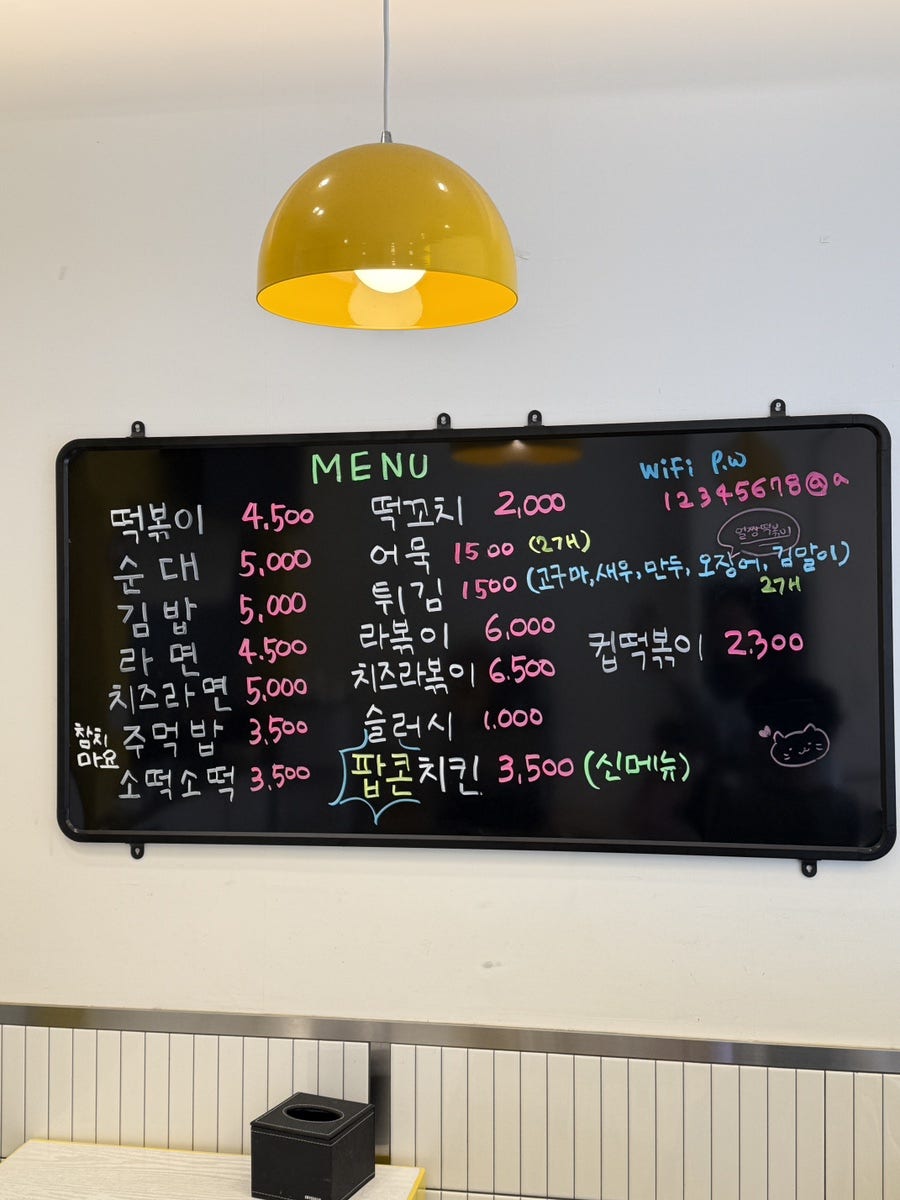 MENU
떡볶이 4.500
순대 5,000
김밥 5,000
라면 4.500
치즈라면 5,000
참치
마요
주먹밥 3,500
소떡소떡 3,500
떡꼬치 2,000
어묵 1500 (2개)
튀김 1500 (고구마,새우,만두,오징어,김말이)
2개
라볶이 6,000
치즈라볶이 6.500
슬러시 1.000
팝콘치킨 3,500 (신메뉴)
WiFi P.W
12345678@a
얼짱떡볶이
컵떡볶이 2.300